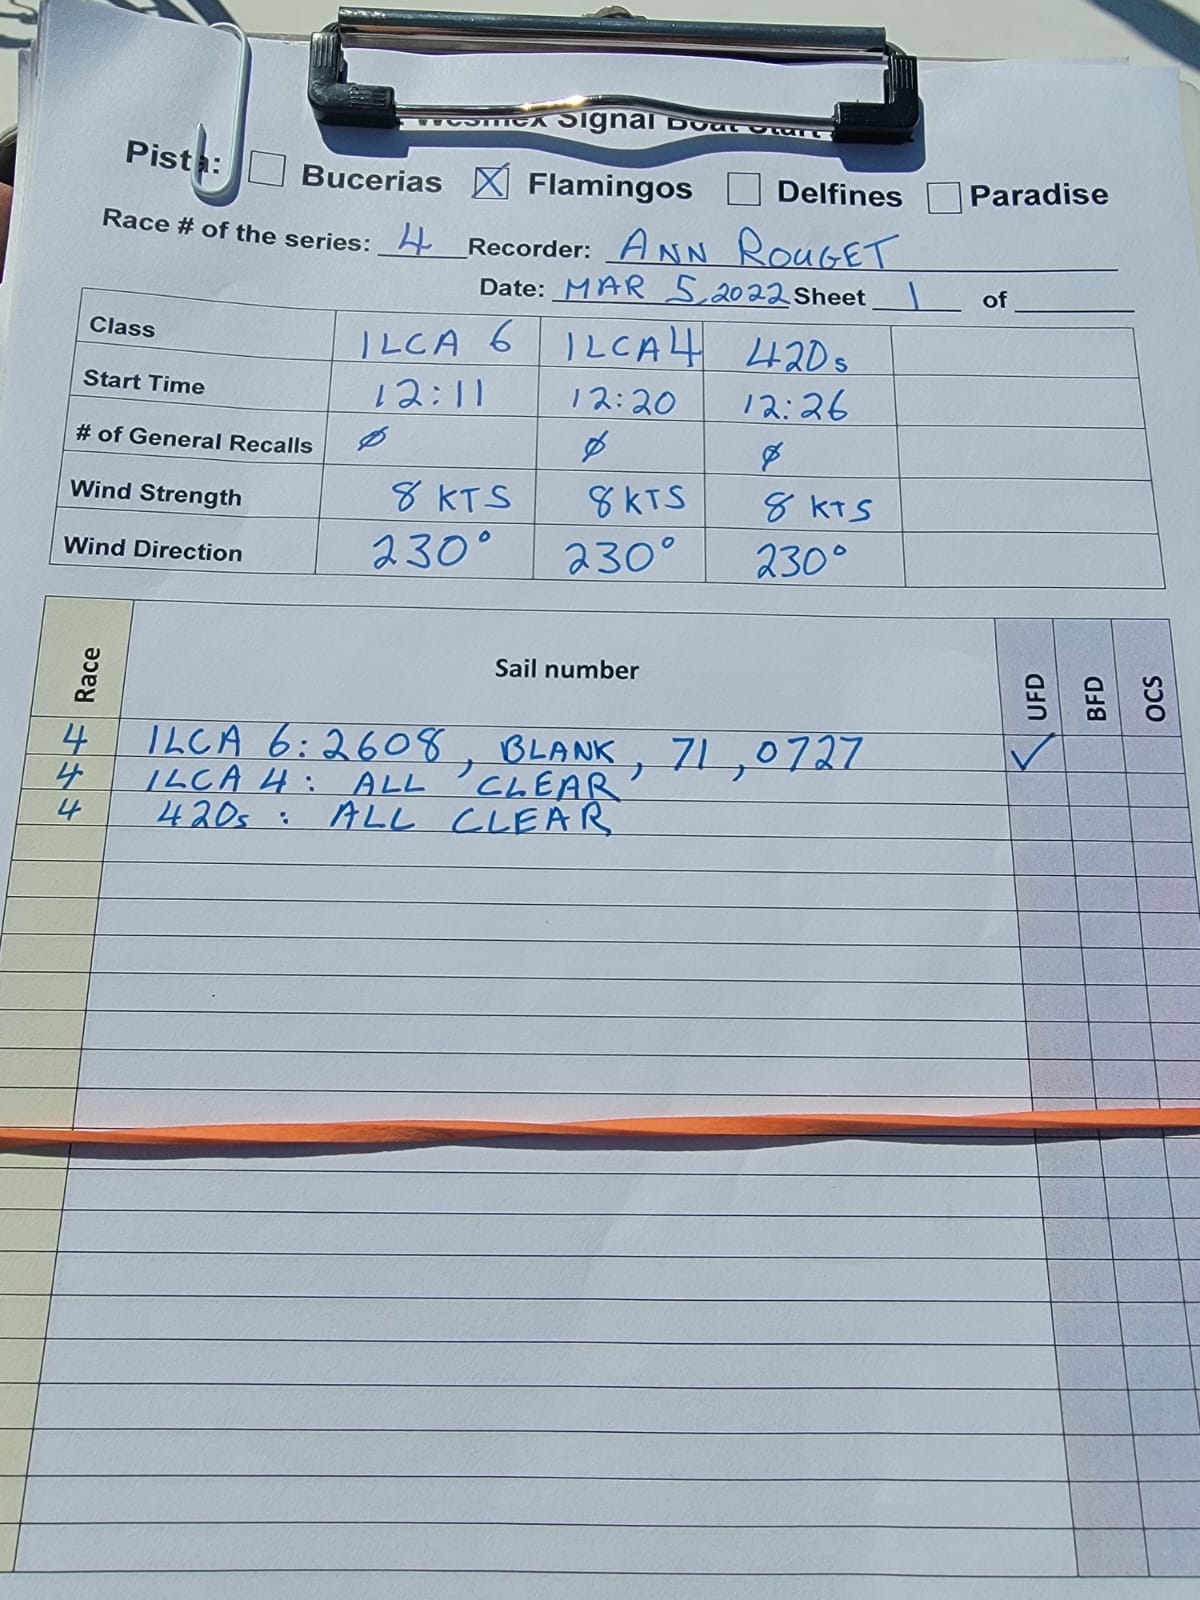 Wesmex Signal Boat Start
Pista: Bucerias Flamingos Delfines Paradise
Race # of the series: 4 Recorder: ANN ROUGET
Date: MAR 5, 2022 Sheet 1 of
Class ILCA 6 ILCA 4 420s
Start Time 12:11 12:20 12:26
# of General Recalls ∅ ∅ ∅
Wind Strength 8 KTS 8 KTS 8 KTS
Wind Direction 230° 230° 230°
Race Sail number UFD BFD OCS
4 ILCA 6: 2608, BLANK, 71, 0727 ✓
4 ILCA 4: ALL CLEAR
4 420s: ALL CLEAR